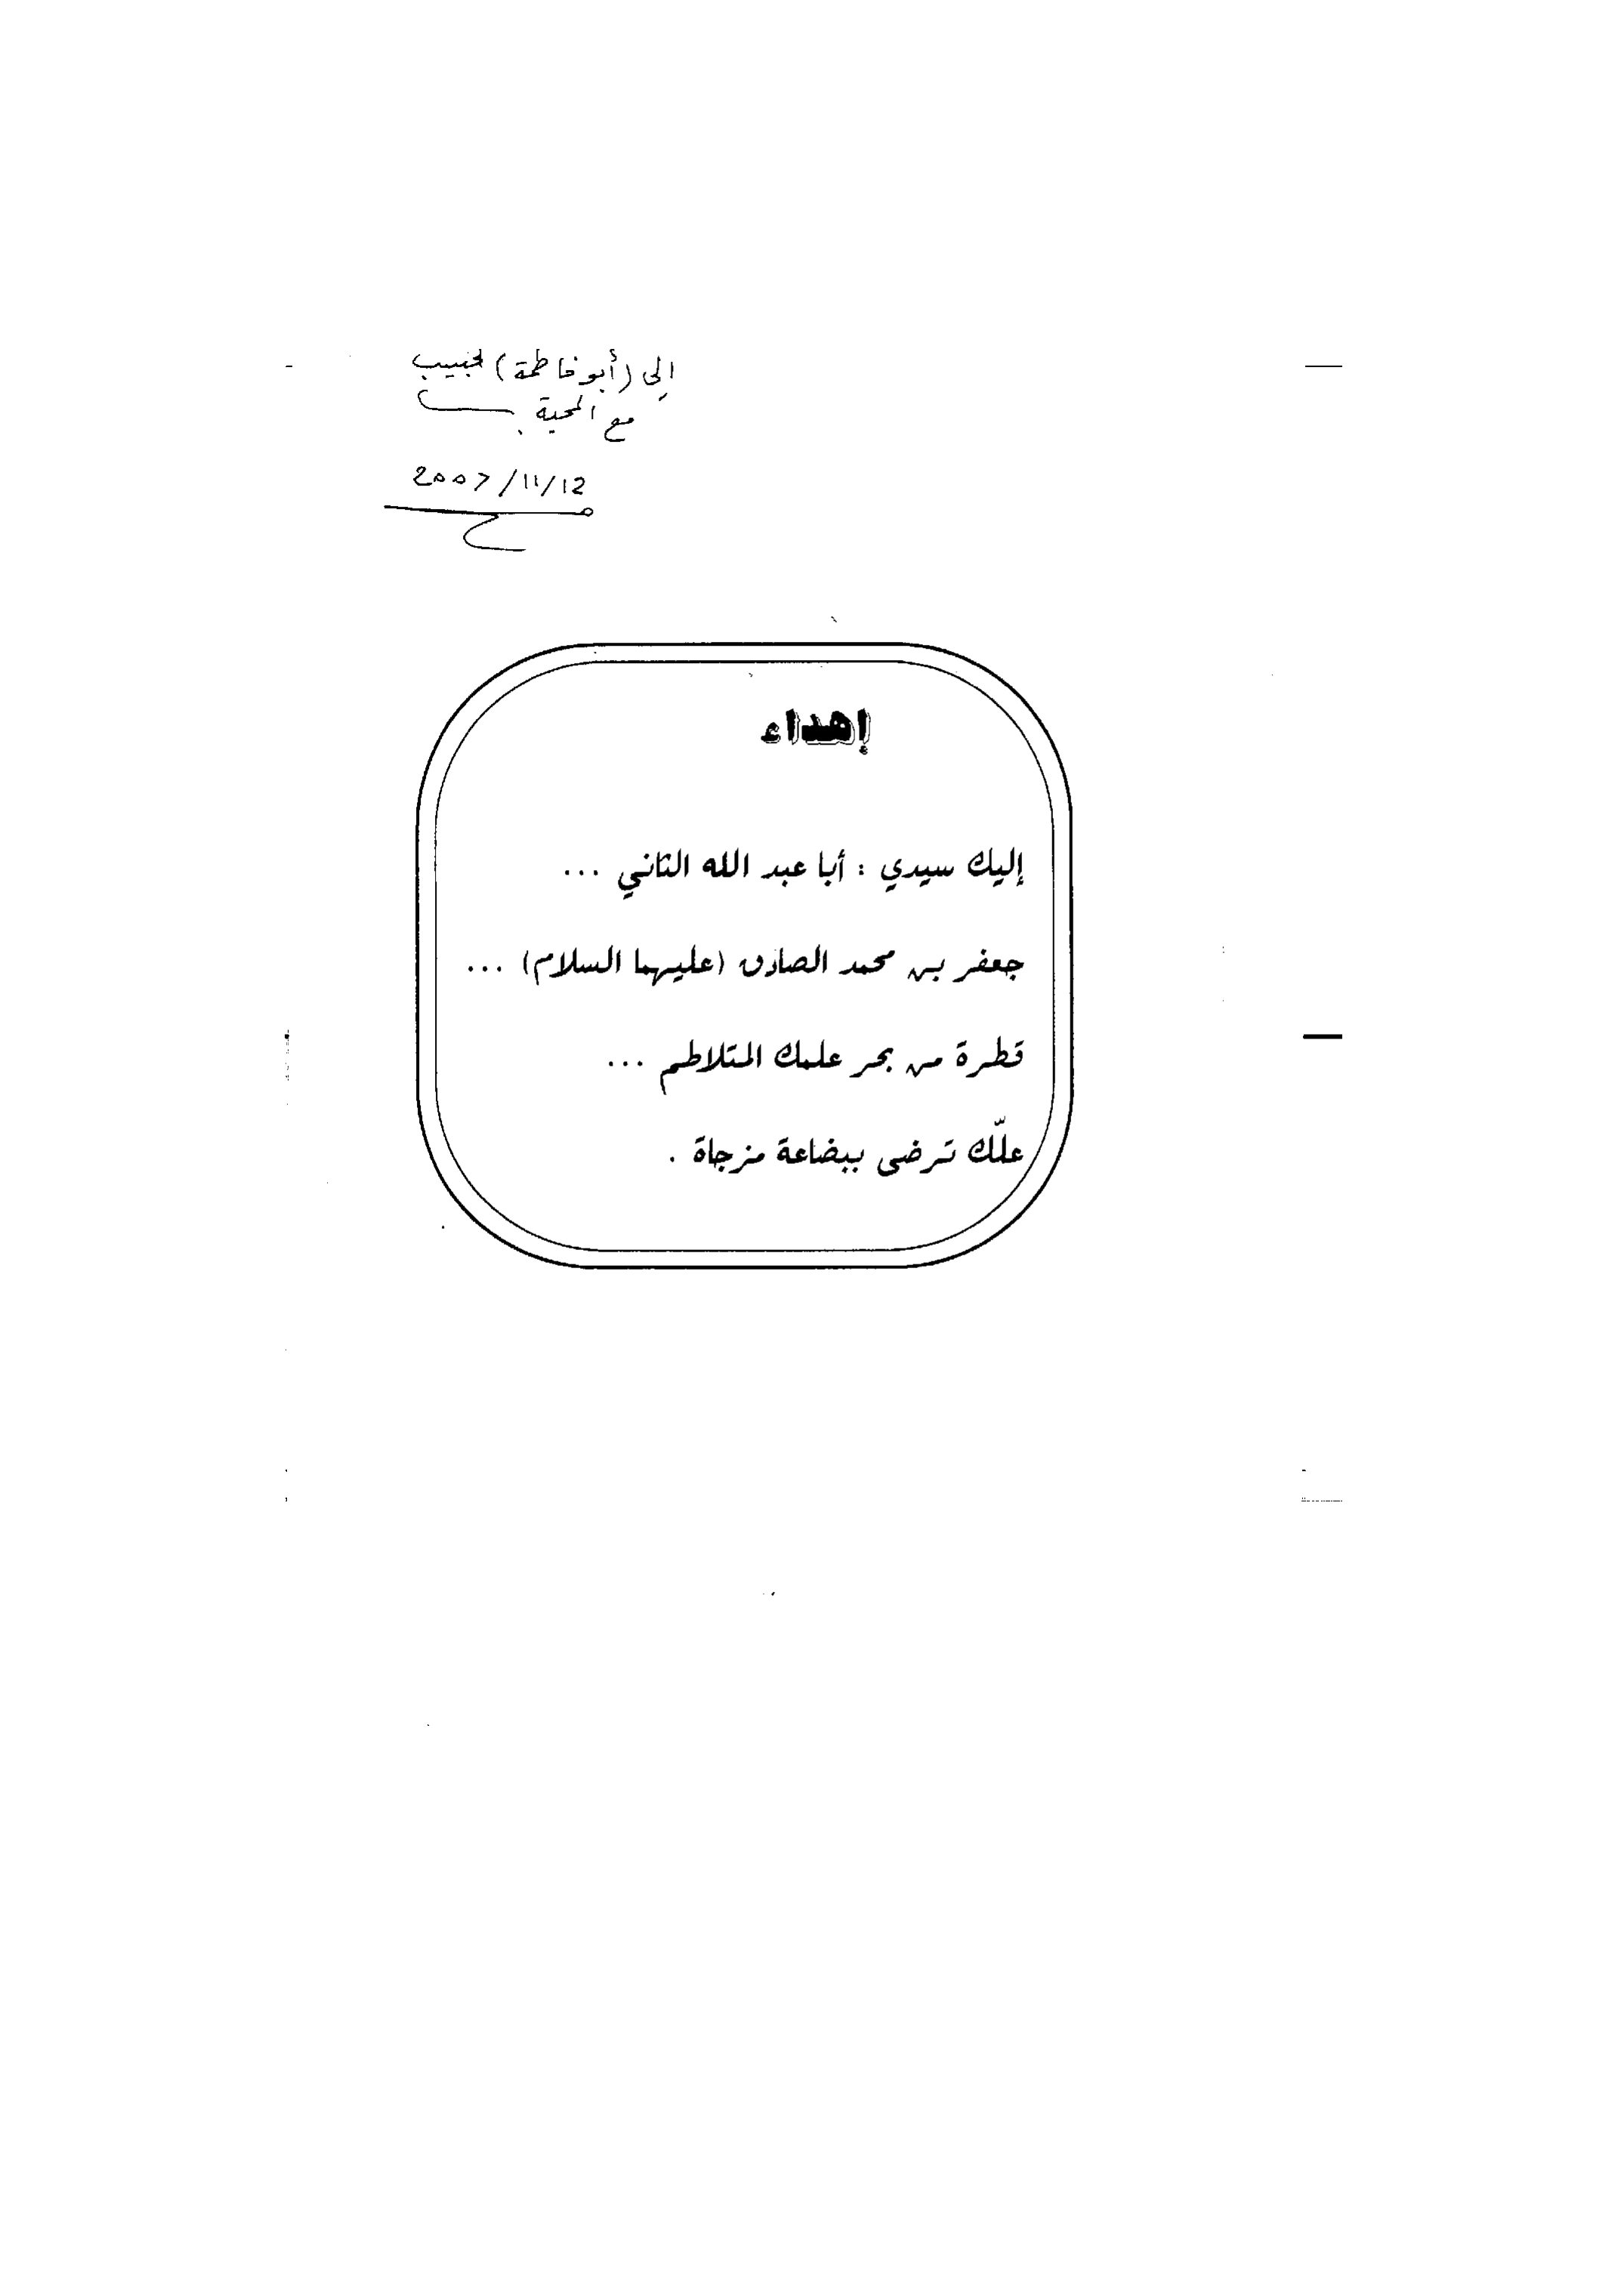 إلى (أبو فاطمة) لحبيب
مع المحبة
2007/11/12
إهداء
إليك سيدي : أبا عبد الله الثاني ...
جعفر بن محمد الصادق (عليهما السلام) ...
قطرة من بحر علمك المتلاطم ...
علّك ترضى ببضاعة مزجاة .